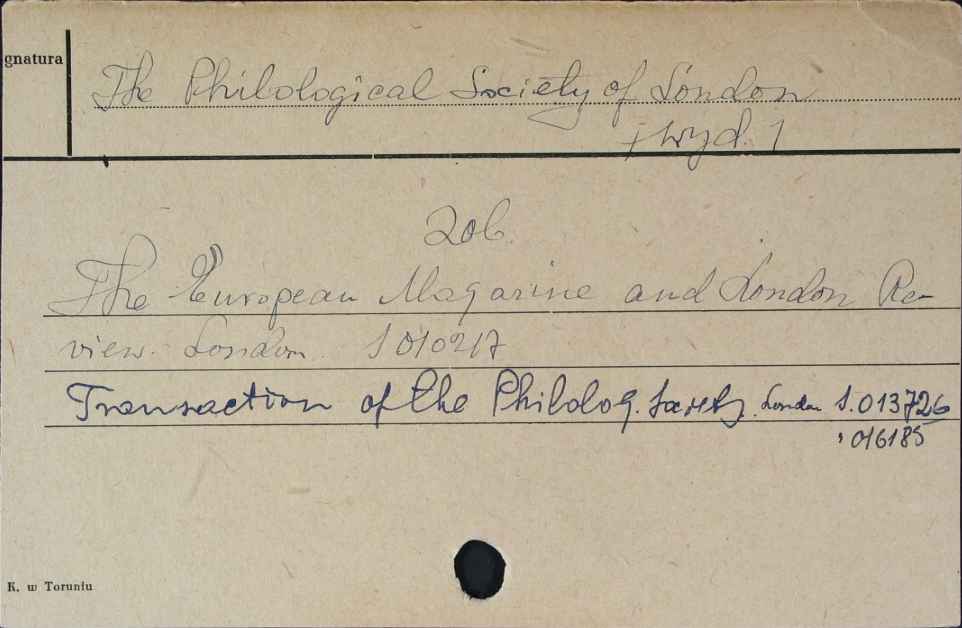 gnatura
The Philological Society of London
j wyd. 1
Zob.
The European Magazine and London Re-
view. London. S 010217
Transaction of the Philolog. Society. London S. 013726
016185
K. w Toruniu